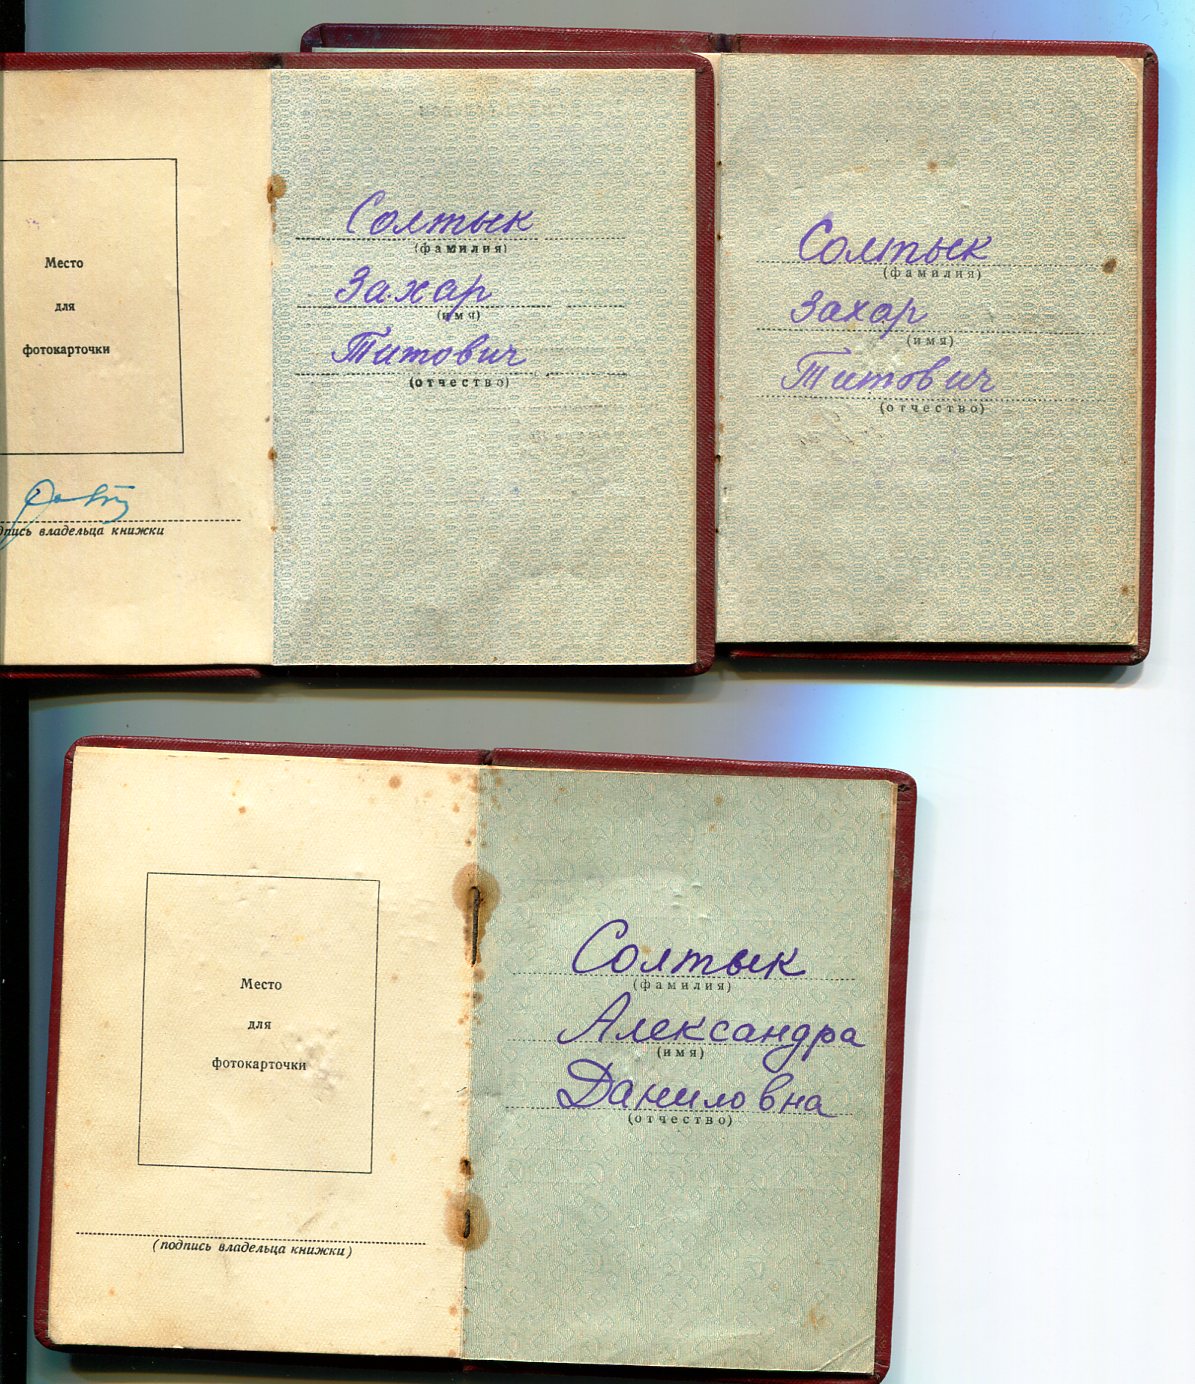 Место
для
фотокарточки
дпись владельца книжки
Солтык
(фамилия)
Захар
(имя)
Титович
(отчество)
Солтык
(фамилия)
Захар
(имя)
Титович
(отчество)
Место
для
фотокарточки
(подпись владельца книжки)
Солтык
(фамилия)
Александра
(имя)
Даниловна
(отчество)